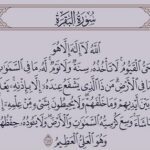 سُورَةُ البَقَرَةِ
اللَّهُ لَا إِلَٰهَ إِلَّا هُوَ
الْحَيُّ الْقَيُّومُ لَا تَأْخُذُهُ سِنَةٌ وَلَا نَوْمٌ لَهُ مَا فِي السَّمَٰوَٰتِ
الْأَرْضِ مَنْ ذَا الَّذِي يَشْفَعُ عِنْدَهُ إِلَّا بِإِذْنِهِ
بَيْنَ أَيْدِيهِمْ وَمَا خَلْفَهُمْ وَلَا يُحِيطُونَ بِشَيْءٍ مِنْ عِلْمِهِ
شَاءَ وَسِعَ كُرْسِيُّهُ السَّمَٰوَٰتِ وَالْأَرْضَ وَلَا يَئُودُهُ حِفْظُهُمَا
وَهُوَ الْعَلِيُّ الْعَظِيمُ